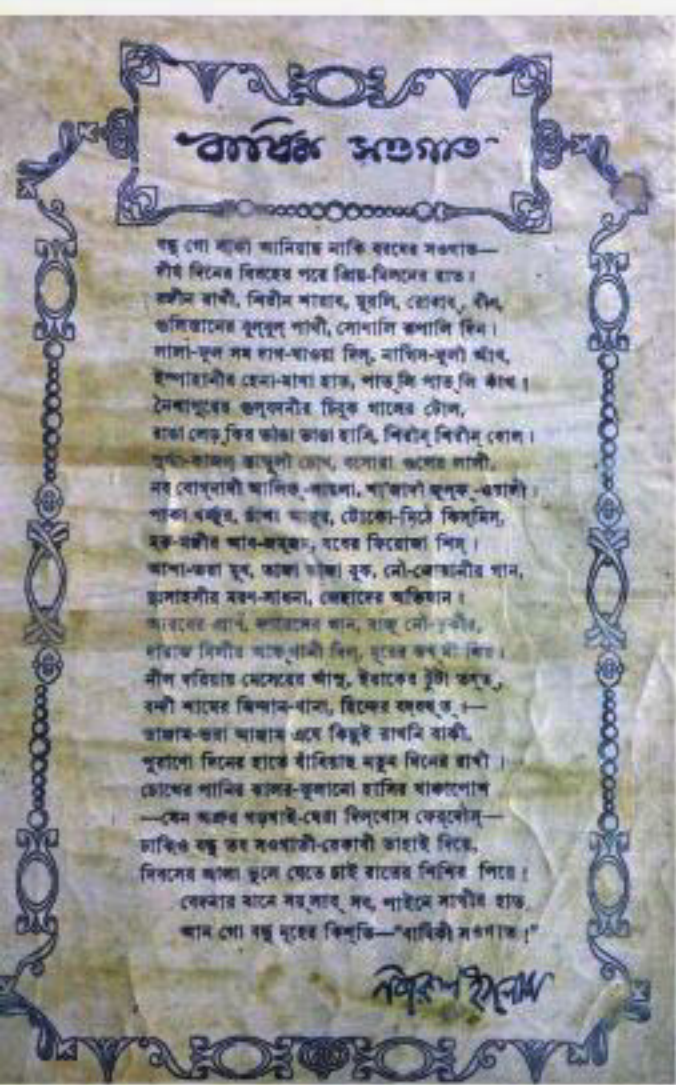 বার্ষিক সওগাত
বন্ধু গো সাকী আনিয়াছ নাকি বরষের সওগাত—
দীর্ঘ দিনের বিরহের পরে প্রিয়-মিলনের রাত।
রঙ্গীন রাখী, শিরীন শারাব, মুরলি, রোবাব্, বীন্,
গুলিস্তানের বুল্‌বুল্ পাখী, সোনালি রূপালি দিন।
লালা-ফুল সম দাগ-খাওয়া দিল্, নার্গিস-ফুলী আঁখ,
ইস্পাহানীর হেনা-মাখা হাত, পাত্‌লি পাত্‌লি কাঁখ।
নৈশাপুরের গুল্‌বদনীর চিবুক গালের টোল,
রাঙা লেড়্‌কির ভাঙা ভাঙা হাসি, শিরীন্ শিরীন্ বোল।
সুর্মা-কাজল স্তাম্বুলী চোখ, বসোরা গুলের লালী,
নব বোগ্‌দাদী আলিফ্-লায়লা, শা'জাদী জুল্‌ফ্-ওয়ালী।
পাকা খর্জুর, ডাঁশা আঙ্গুর, টোকো-মিঠে কিস্‌মিস্,
মরু-মঞ্জীর আব-জম্‌জম্, যবের ফিরোজা শিস্।
আশা-ভরা মুখ, তাজা তাজা বুক, নৌ-জোয়ানীর গান,
দুঃসাহসীর মরণ-সাধনা, জেহাদের অভিযান।
আরবের প্রাণ, ফারেসের গান, বাজু নৌ-তুর্কীর,
দারাজ দিলীর আফ্‌গানী দিল্, মূরের জখ্‌মী শির।
নীল দরিয়ায় মেসেরের আঁসু, ইরাকের টুটা তখ্‌ত্,
বন্দী শামের জিন্দান-খানা, হিন্দের বদ্‌বখ্‌ত্।—
তাঞ্জাম-ভরা আঞ্জাম এযে কিছুই রাখনি বাকী,
পুরাণো দিনের হাতে বাঁধিয়াছ নতুন দিনের রাখী।
চোখের পানির ঝালর-ঝুলানো হাসির খাঞ্চাপোষ
—যেন অশ্রুর গড়খাই-ঘেরা দিল্‌খোস ফেরদৌস্—
ঢাকিও বন্ধু তব সওগাতী-রেকাবী তাহাই দিয়ে,
দিবসের জ্বালা ভুলে যেতে চাই রাতের শিশির পিয়ে।
বেদনার বানে সয়্‌লাব্ সব, পাইনে সাথীর হাত,
আন গো বন্ধু নূহের কিশ্‌তি—"বার্ষিকী সওগাত।"
নজরুল ইসলাম